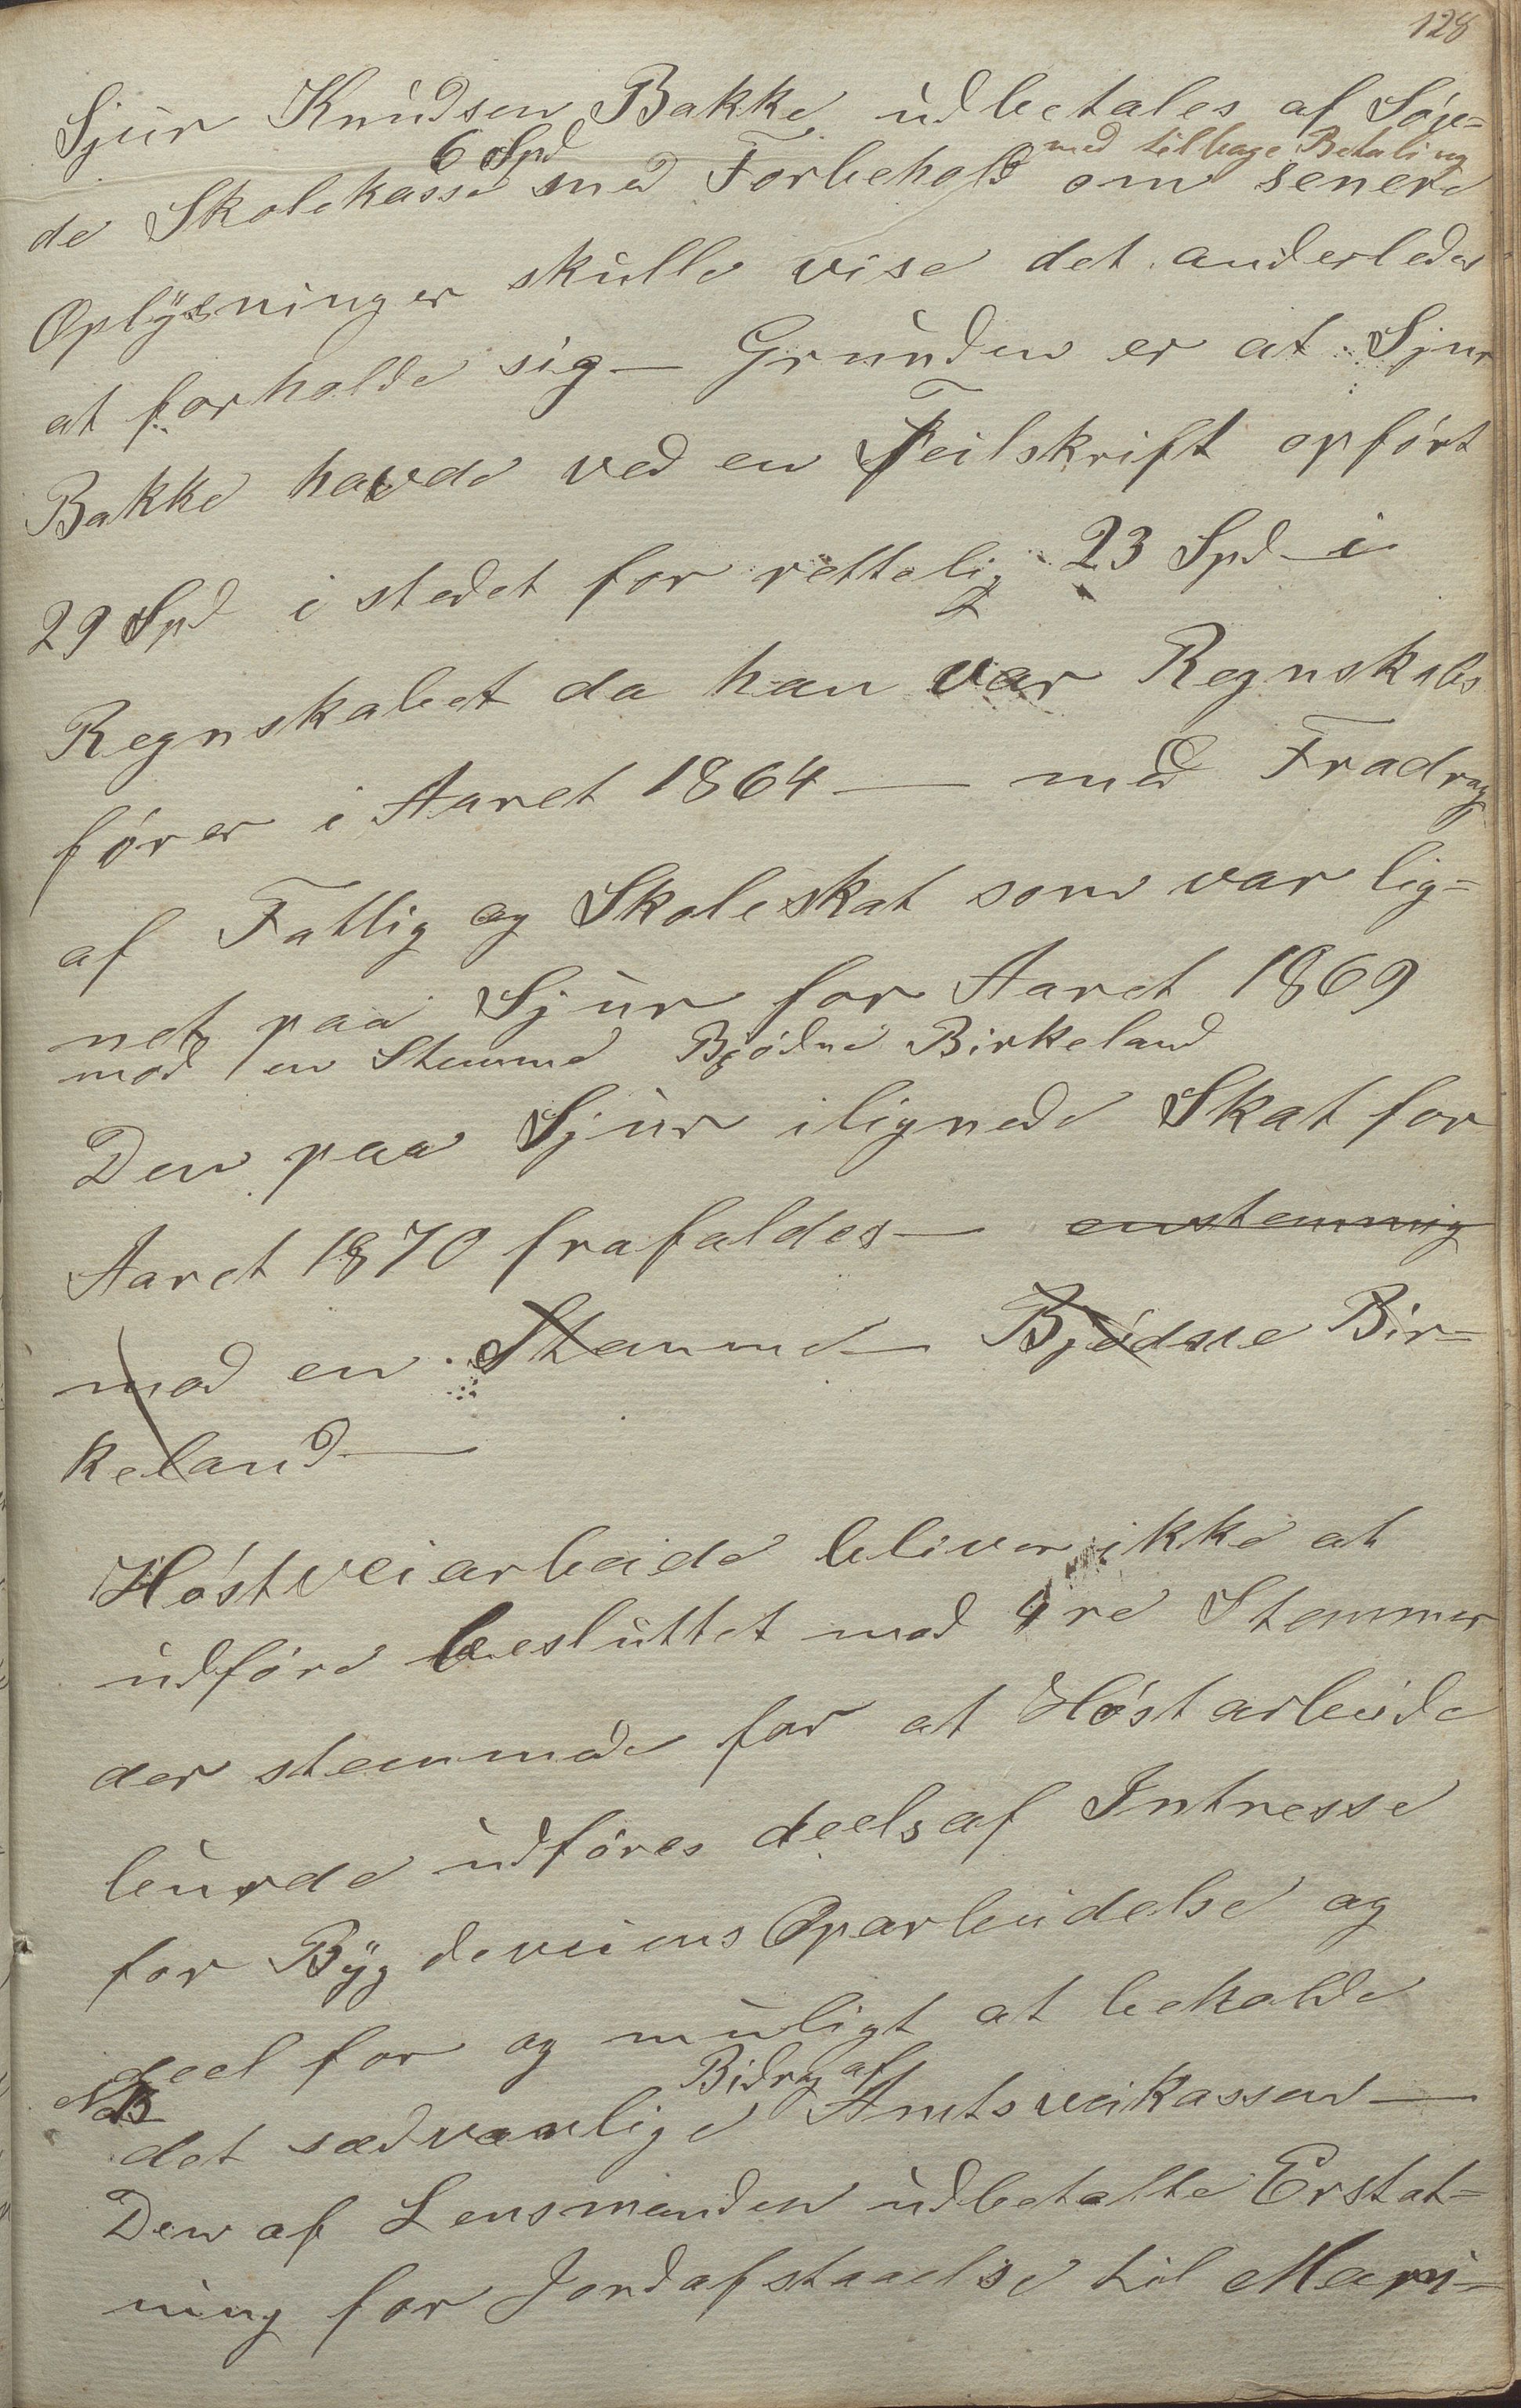 128
Sjur Knudsen Bakke udbetales af Söv=
6 Spd
med tilbage Betaling
de Skolekasse med Forbehold om senere
Oplysninger skulle vise det anderledes
at forholde sig – Grunden er at Sjur
Bakke havde ved en Feilskrift opfört
29 Spd i stedet for rettelig 23 Spd i
Regnskabet da han var Regnskabs
förer i Aaret 1864 — med Fradrag
af Fattig og Skoleskat som var lig=
net paa Sjur for Aaret 1869
mod en Stemme Bjödne Birkeland
Den paa Sjur ilignede Skat for
Aaret 1870 frafaldes — enstemmig
mod en Stemme – Bjödne Bir=
keland —
Höstveiarbeide bliver ikke at
udföre besluttet mod 4re Stemmer
der stemmede for at Höstarbeide
burde udföres deels af Intresse
for Bygdeveiens Oparbeidelse og
deel for og muligt at beholde
NB
Bidrag af
det sædvanlige Amtsveikassen —
Den af Lensmanden udbetalte Erstat=
ning for Jordafstaaelse til